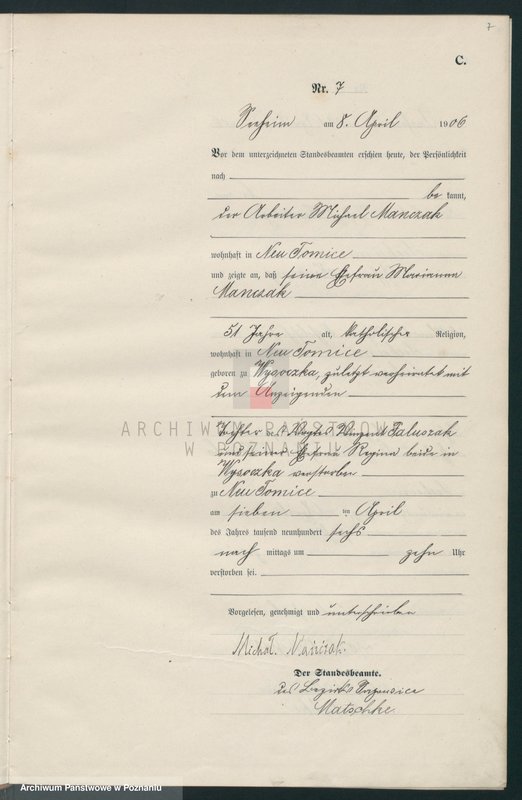 7
C.
Nr. 7
Seeheim am 8. April 1906
Vor dem unterzeichneten Standesbeamten erschien heute, der Persönlichkeit
nach
be kannt,
der Arbeiter Michael Manczak
wohnhaft in Neu Tomice
und zeigte an, daß seine Ehefrau Marianna
Manczak
51 Jahre alt, katholischer Religion,
wohnhaft in Neu Tomice
geboren zu Wysoczka, zuletzt verheiratet mit
dem Anzeigenden
Tochter des Vogtes Vincent Taluszak
und seiner Ehefrau Regina beide in
Wysoczka verstorben
zu Neu Tomice
am sieben ten April
des Jahres tausend neunhundert sechs
nach mittags um zehn Uhr
verstorben sei.
Vorgelesen, genehmigt und unterschrieben
Michał
Der Standesbeamte.
des Bezirks
Matschke.
ARCHIWUM PAŃSTWOWE
W POZNANIU
Archiwum Panstwowe w Poznaniu